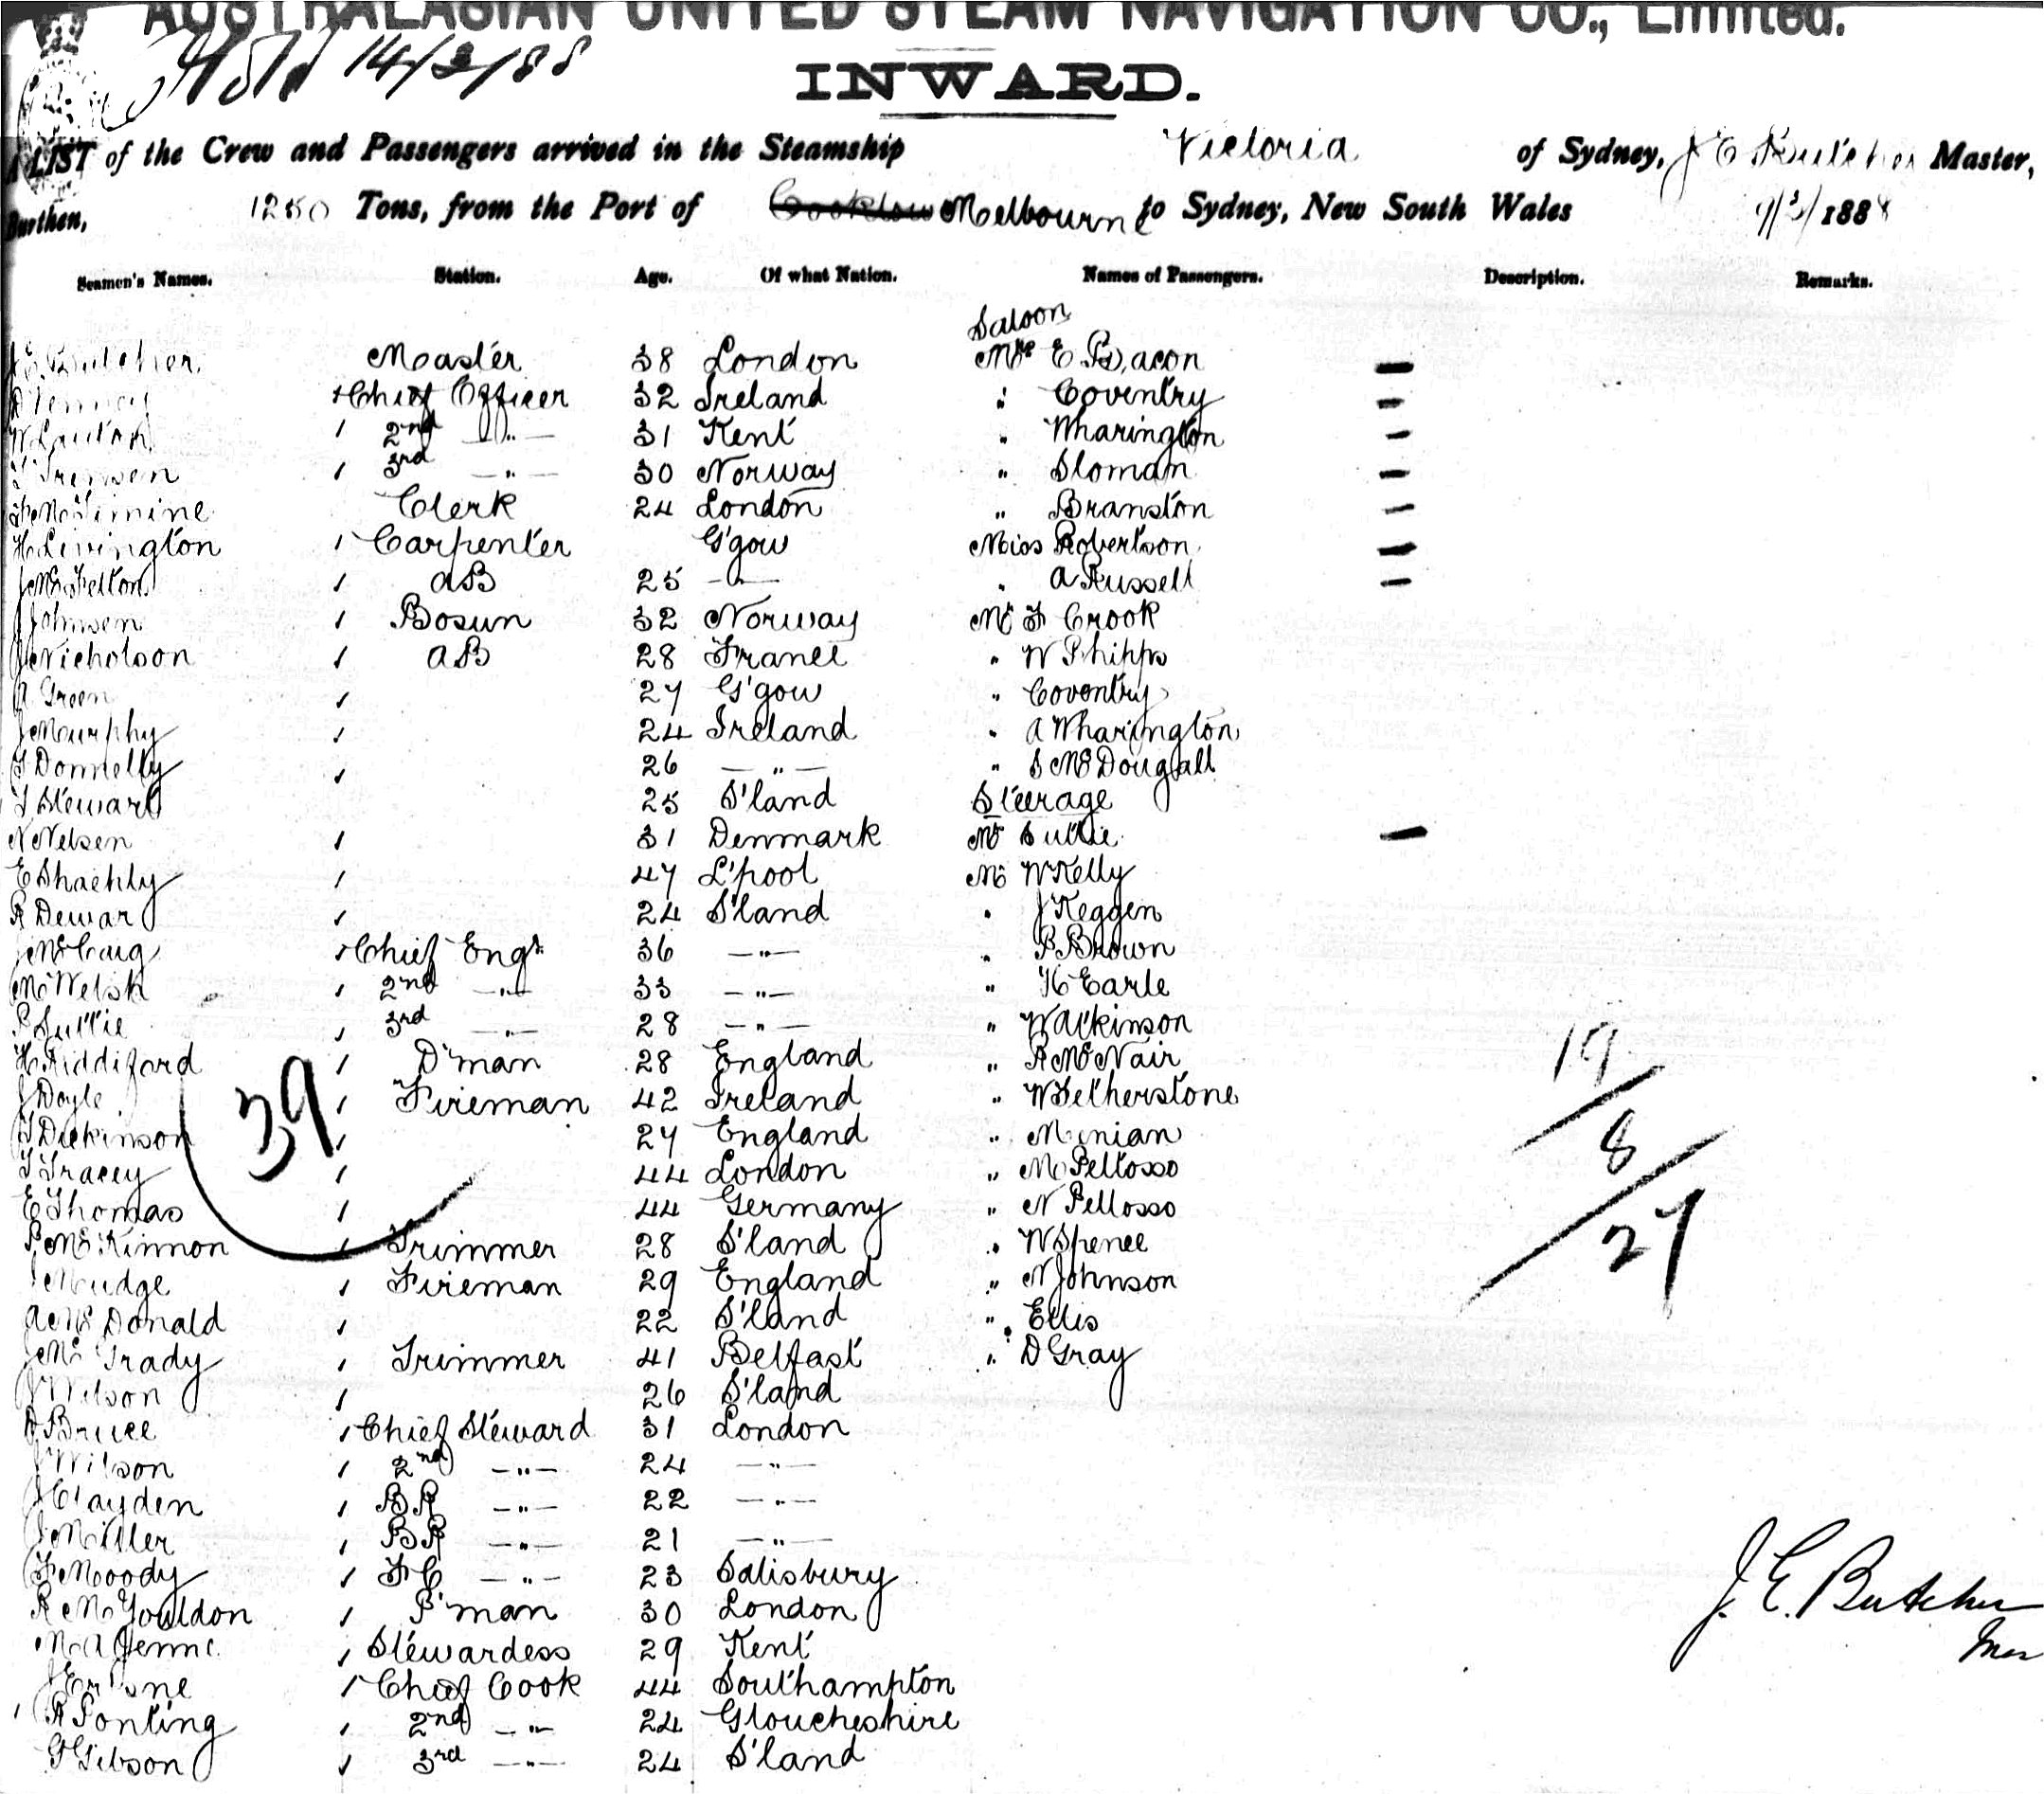 AUSTRALASIAN UNITED STEAM NAVIGATION CO., Limited.
14/3/88
INWARD.
A LIST of the Crew and Passengers arrived in the Steamship Victoria of Sydney, J E Butcher Master,
Burthen, 1250 Tons, from the Port of Cooktown Melbourne to Sydney, New South Wales 9/3/1888
Seamen's Names. Station. Age. Of what Nation. Names of Passengers. Description. Remarks.
Saloon
J E Butcher Master 38 London Mrs E Bacon —
Chief Officer 32 Ireland " Coventry —
2nd —"— 31 Kent " Wharington —
3rd —"— 30 Norway " Sloman —
Clerk 24 London " Branston —
H Livington Carpenter G'gow Miss Robertson —
AB 25 —"— " A Russell —
J Johnsen Bosun 32 Norway Mr F Crook
J Nicholson AB 28 France " W Phipps
A Green 27 G'gow " Coventry
J Murphy 24 Ireland " A Wharington
T Donnelly 26 —"— " S McDougall
J Stewart 25 S'land Steerage
N Nelsen 31 Denmark Mrs Suttie —
E Shaehly 47 L'pool Mr W Kelly
R Dewar 24 S'land " J Keggen
J McCaig Chief Engr 36 —"— " P Brown
M Welsh 2nd —"— 33 —"— " H Earle
P Suttie 3rd —"— 28 —"— " W Atkinson
H Riddiford D'man 28 England " R McNair
J Doyle Fireman 42 Ireland " W Fetherstone
T Dickinson 27 England "
T Tracey 44 London " M Pellosso
E Thomas 44 Germany " N Pellosso
P McKinnon Trimmer 28 S'land " W Spence
J Mudge Fireman 29 England " N Johnson
A McDonald 22 S'land " Ellis
J McGrady Trimmer 41 Belfast " D Gray
J Wilson 26 S'land
D Bruce Chief Steward 31 London
J Wilson 2nd —"— 24 —"—
J Clayden BR —"— 22 —"—
J Miller BR —"— 21 —"—
F Moody FC —"— 23 Salisbury
R McGouldon P'man 30 London
M A Stewardess 29 Kent
Chief Cook 44 Southampton
R Ponting 2nd —"— 24 Gloucheshire
G Gibson 3rd —"— 24 S'land
39
19
8
27
J. E. Butcher